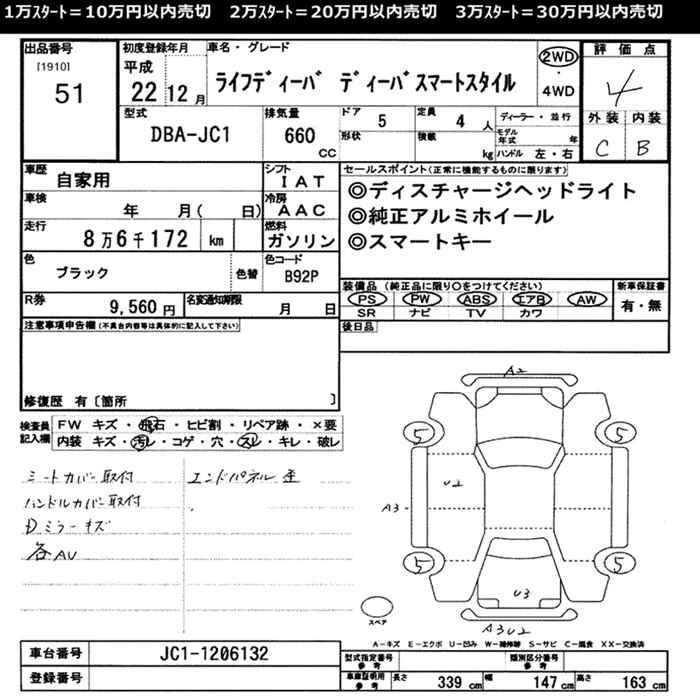 1万スタート=10万円以内売切 2万スタート=20万円以内売切 3万スタート=30万円以内売切
出品番号 初度登録年月 車名・グレード 2WD 評価点
[1910] 平成 ・
51 22 12月 ライフディーバ ディーバスマートスタイル 4WD 4
型式 排気量 ドア 5 定員 4人 ディーラー・並行 外装 内装
DBA-JC1 660 CC 形状 積載 kg モデル年式 年 C B
ハンドル 左・右
車歴 自家用 シフト IAT セールスポイント(正常に機能するものに限ります)
車検 年 月( 日) 冷房 AAC ◎ディスチャージヘッドライト
走行 8万6千172 km 燃料 ガソリン ◎純正アルミホイール
◎スマートキー
色 ブラック 色替 色コード B92P
装備品(純正品に限り○をつけてください) 新車保証書
PS PW ABS エアB AW 有・無
SR ナビ TV カワ
R券 9,560円 名変通知期限 月 日
後日品
注意事項申告欄(不具合内容等は具体的に記入して下さい)
修復歴 有〔箇所 〕
検査員記入欄 FW キズ・飛石・ヒビ割・リペア跡・×要
内装 キズ・汚レ・コゲ・穴・スレ・キレ・破レ
シートカバー取付 エンドパネル歪
ハンドルカバー取付
Dミラーキズ
各AU
A2
5 5
U2
A3
5 5
U3
A3U2
スペア
A-キズ E-エクボ U-凹み W-補修跡 S-サビ C-腐食 XX-交換済
車台番号 JC1-1206132
登録番号
型式指定番号 参考 類別区分番号 参考
車庫証明用 参考 長さ 339cm 幅 147cm 高さ 163cm